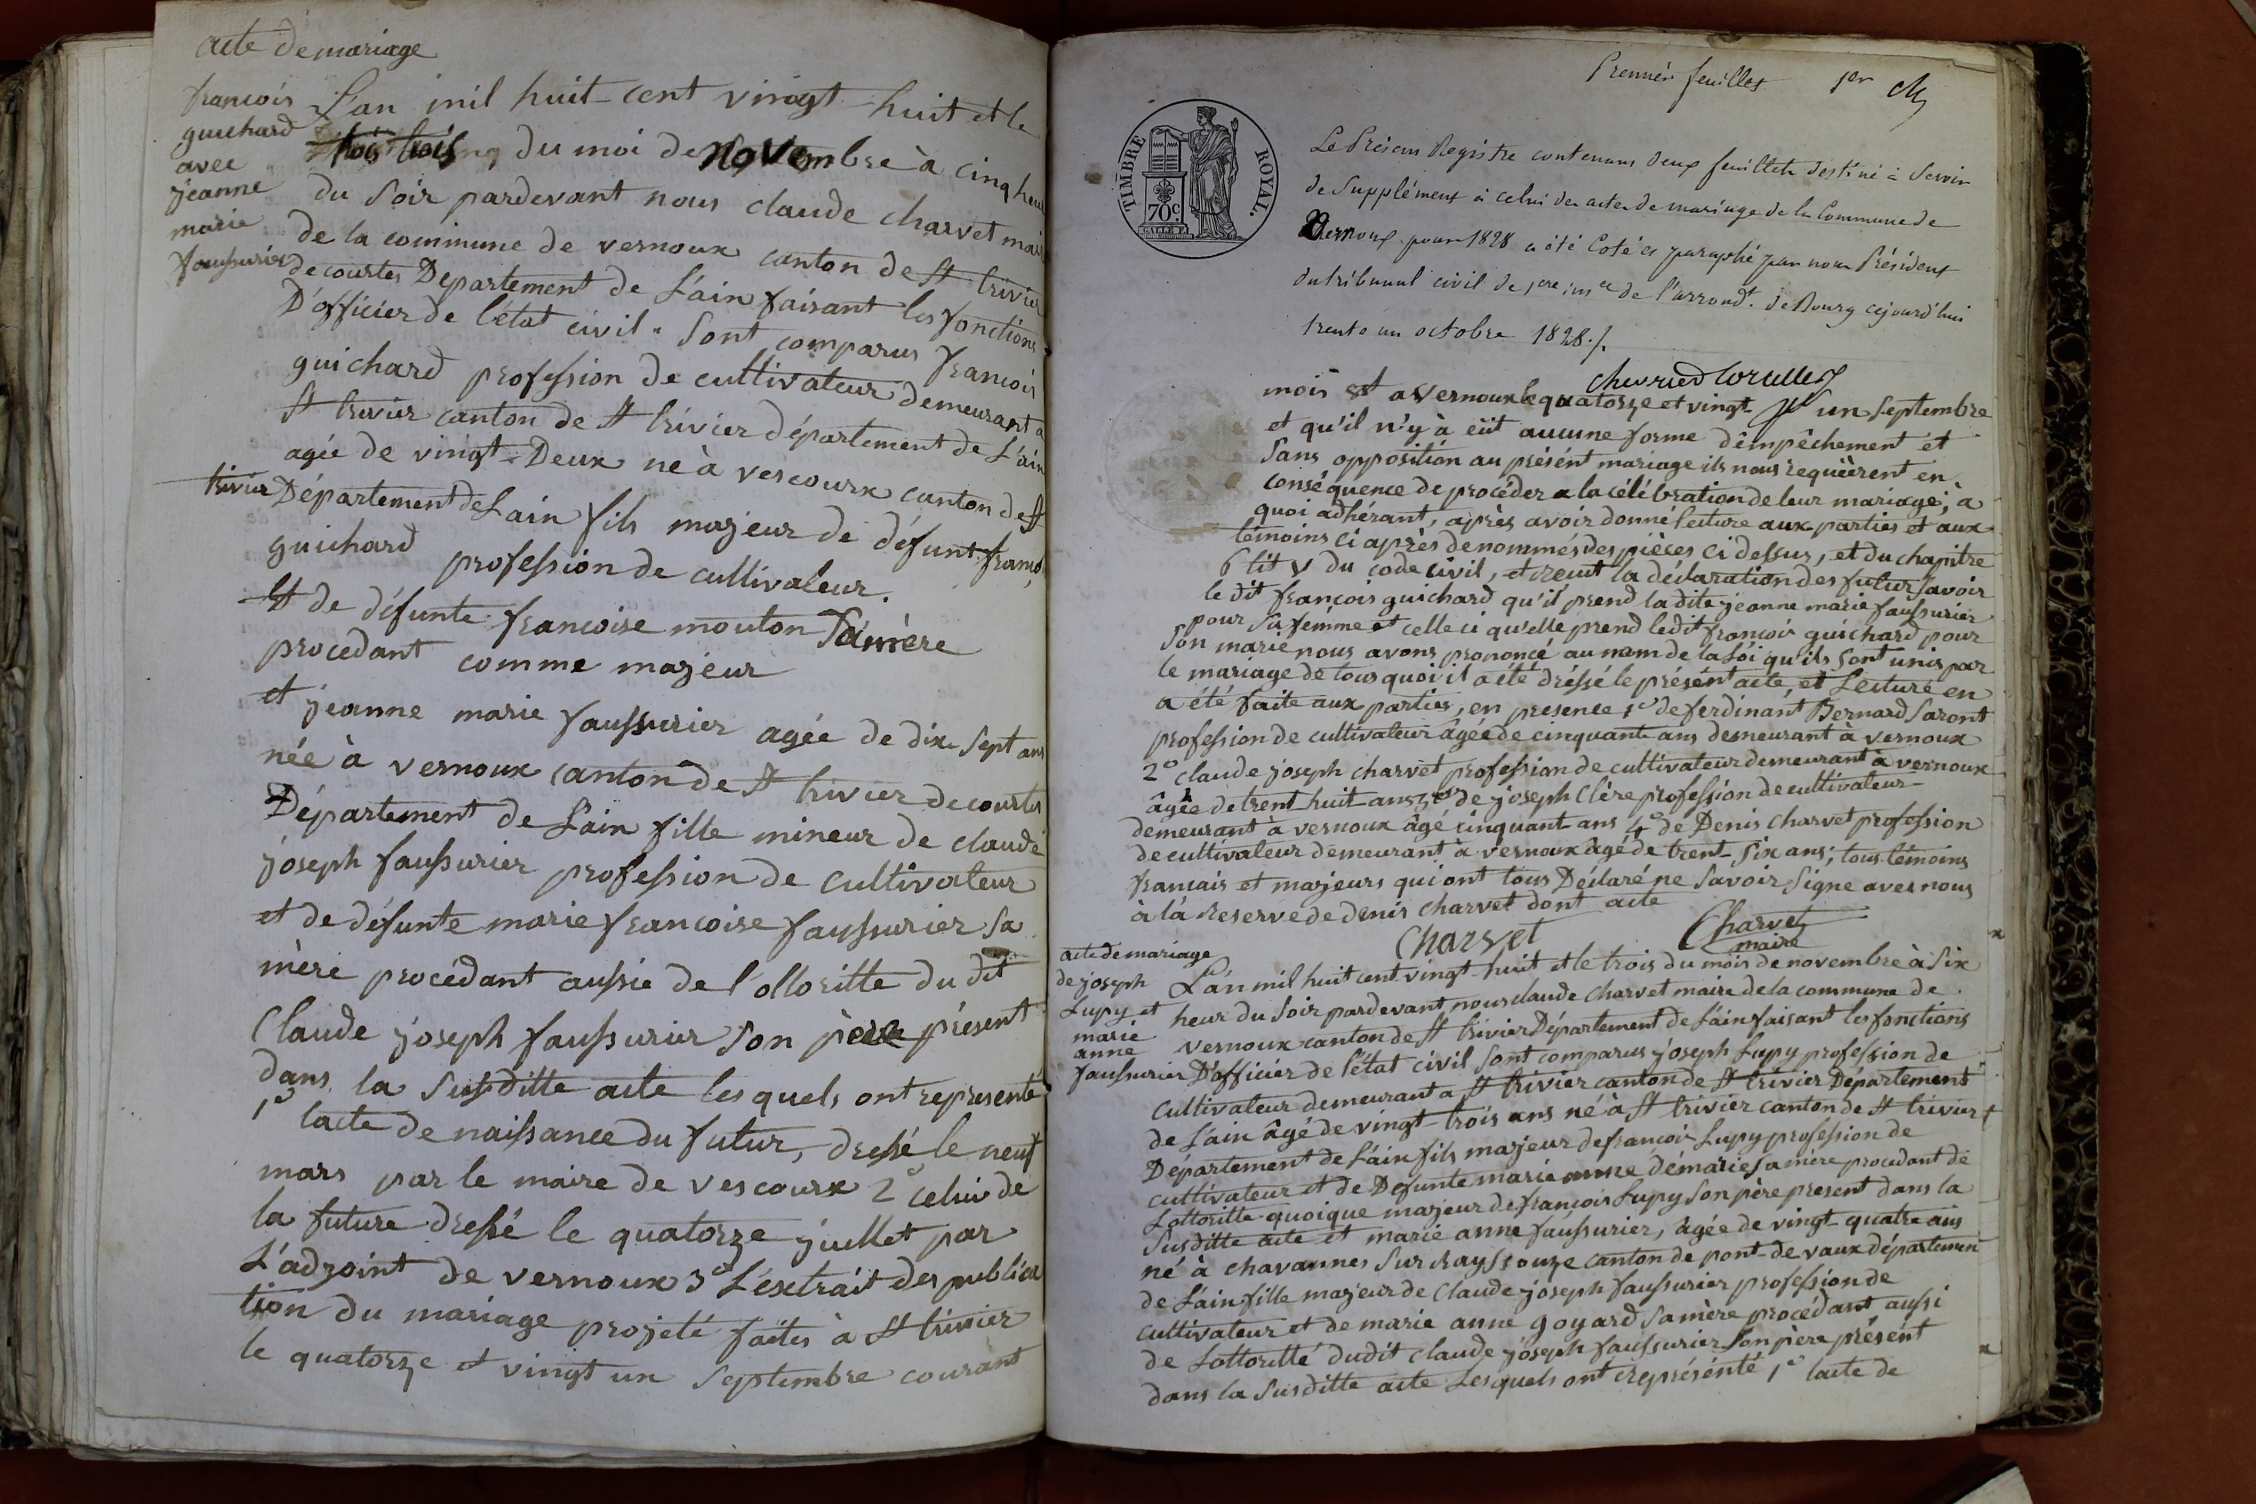 acte de mariage
francois
guichard
avec
jeanne
marie
faussurier
L'an mil huit cent vingt huit et le
trois du moi de Novembre à cinq heur
du soir pardevant nous claude charvet mair
de la commune de vernoux canton de St trivier
de courtes Département de L'ain faisant les fonctions
D'officier de l'état civil. Sont comparus francois
guichard profession de cultivateur demeurant a
St trivier canton de St trivier département de L'ain
agée de vingt-Deux né à vescourx canton de St
trivier Département de Lain fils majeur de défunt franco
guichard profession de cultivateur.
Et de défunte francoise mouton sa mère
procedant comme majeur
et jeanne marie faussurier agée de dix sept ans
née à vernoux canton de St trivier de courtes
Département de Lain fille mineur de claude
joseph faussurier profession de cultivateur
et de défunte marie francoise faussurier sa
mère procédant aussie de l'ottoritte du dit
Claude joseph faussurier son père présent
dans la susditte acte les quels ont representé
1º lacte de naissance du futur, dressé le neuf
mars par le maire de vescourx 2º celui de
la future dressé le quatorze juillet par
L'adjoint de vernoux 3º L'extrait des publica
tion du mariage projeté faites à St trivier
le quatorze et vingt un septembre courant
Premier feuillet 1er
TIMBRE ROYAL.
70c
Le Présent Registre contenant deux feuillets destiné à Servir
de Supplément à celui des actes de mariage de la Commune de
Vernoux pour 1828 a été Coté et paraphé par nous Président
du tribunal civil de 1ere inst.ce de l'arrond.t de Bourg cejourd'hui
trente un octobre 1828./.
mois et a vernoux le quatorze et vingt un septembre
et qu'il n'y à eüt aucune forme d'êmpêchement et
Sans opposition au présent mariage ils nous requèrent en
conséquence de procéder a la célébration de leur mariage; à
quoi adhérant, après avoir donné lecture aux parties et aux
témoins ci après denommés des pièces ci dessus, et du chapitre
6 tit V du code civil, et recut la déclaration des futur savoir
le dit françois guichard qu'il prend la dite jeanne marie faussurier
pour sa fémme et celle ci qu'elle prend ledit françois guichard pour
son marie nous avons prononcé au nam de la Loi qu'ils sont unis par
le mariage de tous quoi il a été dréssé le présent acte, et Lecture en
a été faite aux parties, en presence 1º de ferdinant Bernard Saront
profession de cultivateur âgée de cinquant ans demeurant à vernoux
2º claude joseph charvet profession de cultivateur demeurant à vernoux
âgée de trent huit ans 3º de joseph Clère profession de cultivateur
demeurant à vernoux âgé cinquant ans 4º de Denis charvet profession
de cultivateur demeurant à vernoux âgé de trent six ans; tous témoins
francais et majeurs qui ont tous Déclaré ne savoir signe aves nous
à là reserve de denis charvet dont acte
Charvet Charvet
maire
acte de mariage
de joseph
Lupy et
marie
anne
faussurier
L'an mil huit cent vingt huit et le trois du mois de novembre à six
heur du soir pardevant nous claude Charvet maire de la commune de
vernoux canton de St trivier Département de Láin faisant les fonctions
D'officier de l'état civil sont comparus joseph Lupy profession de
cultivateur demeurant a St trivier canton de St trivier Département
de L'ain âgé de vingt-trois ans né à St trivier canton de St trivier
Département de Láin fils majeur de francois Lupy profession de
cultivateur et de Defunte marie anne démarie sa mère procedant de
Lottoritte quoique majeur de françois Lupy son père present dans la
susditte acte et marie anne faussurier, âgée de vingt quatre ans
né à chavannes sur Rayssouze canton de pont-de vaux départemen
de Láin fille majeur de Claude joseph faussurier profession de
cultivateur et de marie anne goyard sa mère procédant aussi
de Lottoritté dudit claude joseph faussurier son père présent
dans la susditte acte Lesquels ont représenté 1º lacte de